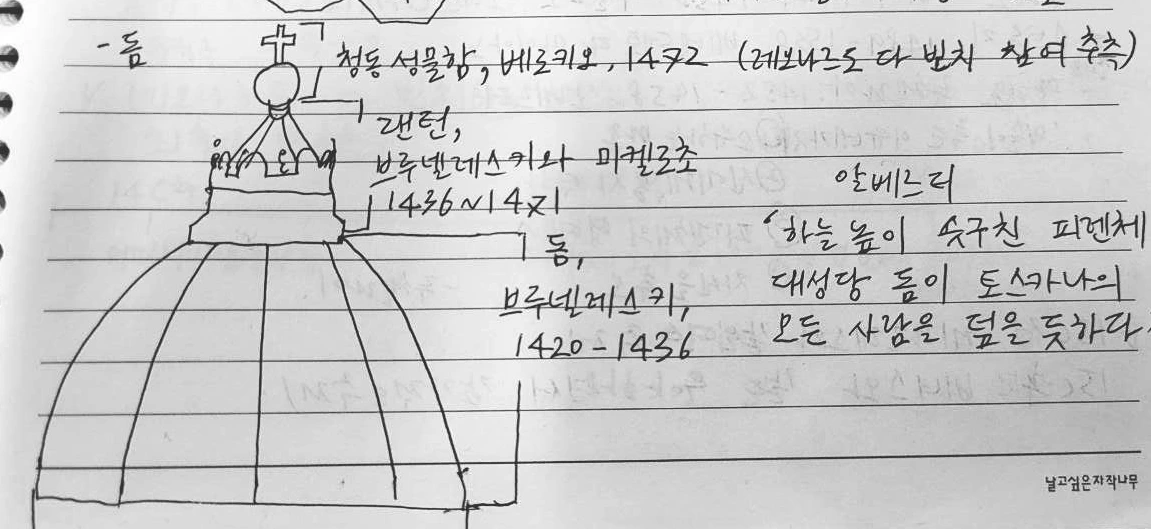 - 돔
청동 성물함, 베로키오, 1472 (레오나르도 다 빈치 참여 추측)
랜턴,
브루넬레스키와 미켈로초
1436~1471
돔,
브루넬레스키,
1420-1436
알베르티
'하늘 높이 솟구친 피렌체
대성당 돔이 토스카나의
모든 사람을 덮을 듯하다.
날고싶은자작나무